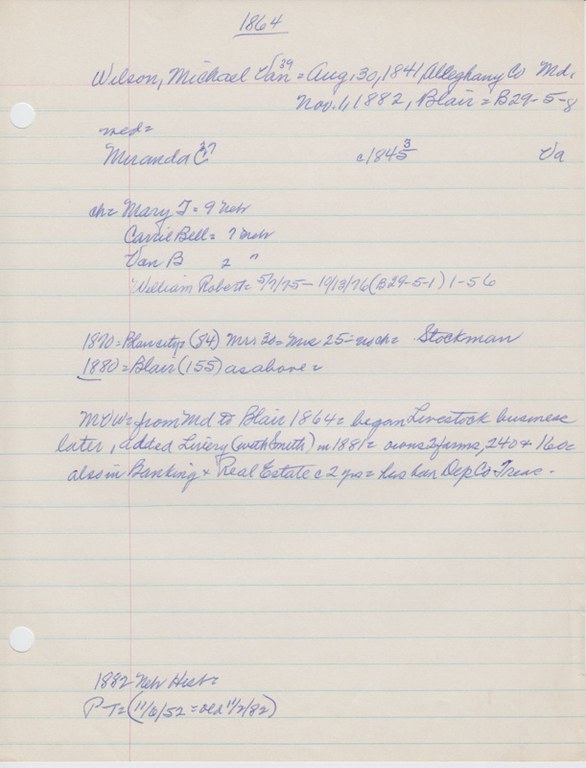 1864
Wilson, Michael Van 39 = Aug. 30, 1841, Alleghany Co Md.
Nov. 1, 1882, Blair = B29-5-8
med =
Miranda C. 37 c1845 3 Va
ch = Mary J = 9 Nebr
Carrie Bell = 7 Nebr
Van B 2 "
William Robert = 5/7/75 - (B29-5-1) 1-56
1870 = (84) Mrs 30 = Mrs 25 = no ch = Stockman
1880 = Blair (155) as above =
MVW = from Md to Blair 1864 = began Livestock business
later, added Livery (with Smith) in 1881 = owns 2 farms, 240 + 160a
also in Banking + Real Estate c 2 yrs = has been Dep Co Treas.
1882 Neb Hist =
P-T = (11/6/52 = old 11/2/82)